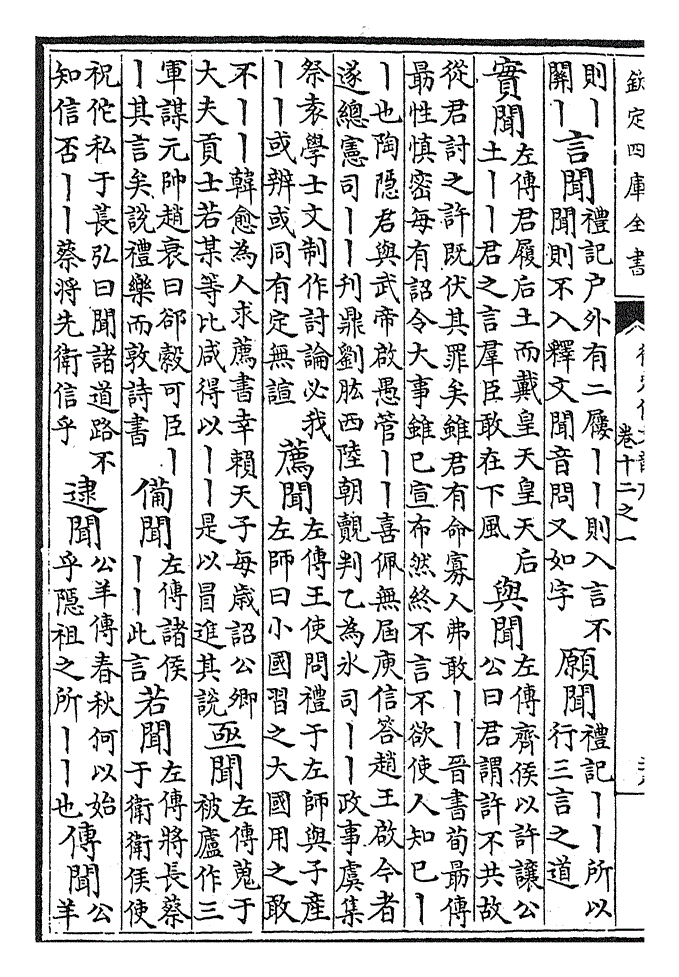 欽定四庫全書
卷十二之一
則丨
關丨
言聞
禮記戶外有二屨丨丨則入言不
聞則不入釋文聞音問又如字
願聞
禮記丨丨所以
行三言之道
實聞
左傳君履后土而戴皇天皇天后
土丨丨君之言羣臣敢在下風
與聞
左傳齊侯以許讓公
公曰君謂許不共故
從君討之許既伏其罪矣雖君有命寡人弗敢丨丨晉書荀勗傳
勗性慎密每有詔令大事雖已宣布然終不言不欲使人知已丨
丨也陶隱君與武帝啟愚管丨丨喜佩無屆庾信答趙王啟今者
遂總憲司丨丨刊鼎劉肱西陸朝覿判乙為氷司丨丨政事虞集
祭袁學士文制作討論必我
丨丨或辨或同有定無諠
薦聞
左傳王使問禮于左師與子產
左師曰小國習之大國用之敢
不丨丨韓愈為人求薦書幸賴天子每歲詔公卿
大夫貢士若某等比咸得以丨丨是以冒進其說
亟聞
左傳蒐于
被廬作三
軍謀元帥趙衰曰郤縠可臣丨
丨其言矣說禮樂而敦詩書
備聞
左傳諸侯
丨丨此言
若聞
左傳將長蔡
于衛衛侯使
祝佗私于萇弘曰聞諸道路不
知信否丨丨蔡將先衛信乎
逮聞
公羊傳春秋何以始
乎隱祖之所丨丨也
傳聞
公
羊